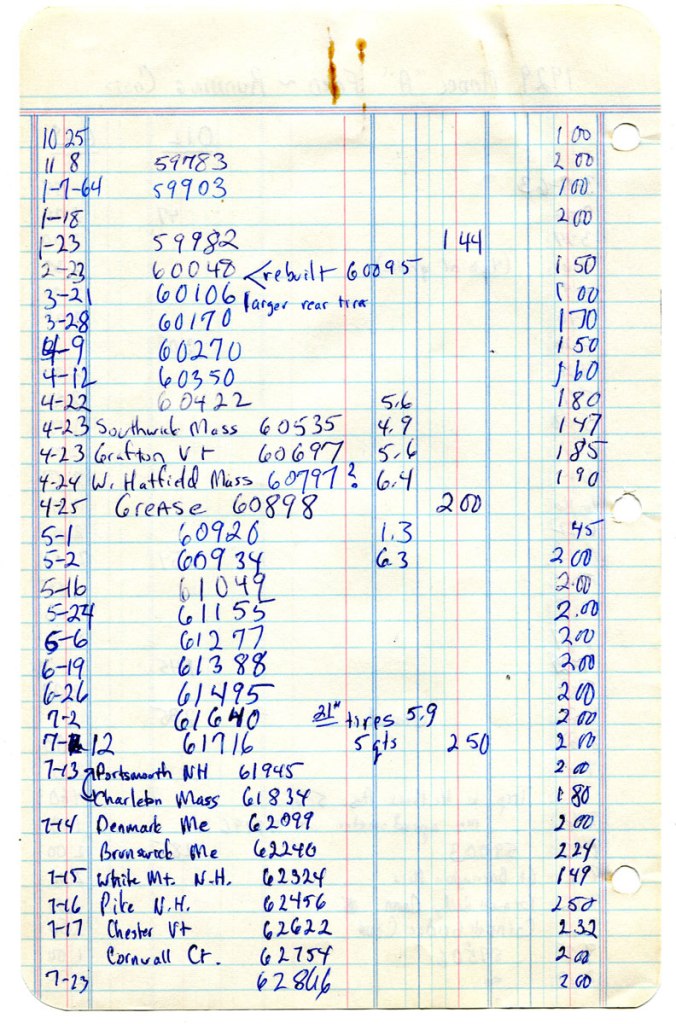 10 25 1 00
11 8 59783 2 00
1-7-64 59903 1 00
1-18 2 00
1-23 59982 1 44
2-23 60048 < rebuilt 60095 1 50
3-21 60106 larger rear tires 1 00
3-28 60170 1 70
4-9 60270 1 50
4-12 60350 1 60
4-22 60422 5.6 1 80
4-23 Southwick Mass 60535 4.9 1 47
4-23 Grafton Vt 60697 5.6 1 85
4-24 W. Hatfield Mass 60797? 6.4 1 90
4-25 Grease 60898 2 00
5-1 60920 1.3 45
5-2 60934 6.3 2 00
5-16 61049 2.00
5-24 61155 2.00
6-6 61277 2 00
6-19 61388 2 00
6-26 61495 2 00
7-2 61640 21" tires 5.9 2 00
7-12 61716 5 qts 2 50 2 00
7-13 Portsmouth NH 61945 2 00
Charleton Mass 61834 1 80
7-14 Denmark Me 62099 2 00
Brunswick Me 62240 2 24
7-15 White Mt. N.H. 62324 1 49
7-16 Pike N.H. 62456 2 50
7-17 Chester Vt 62622 2 32
Cornwall Ct. 62754 2 00
7-23 62866 2 00